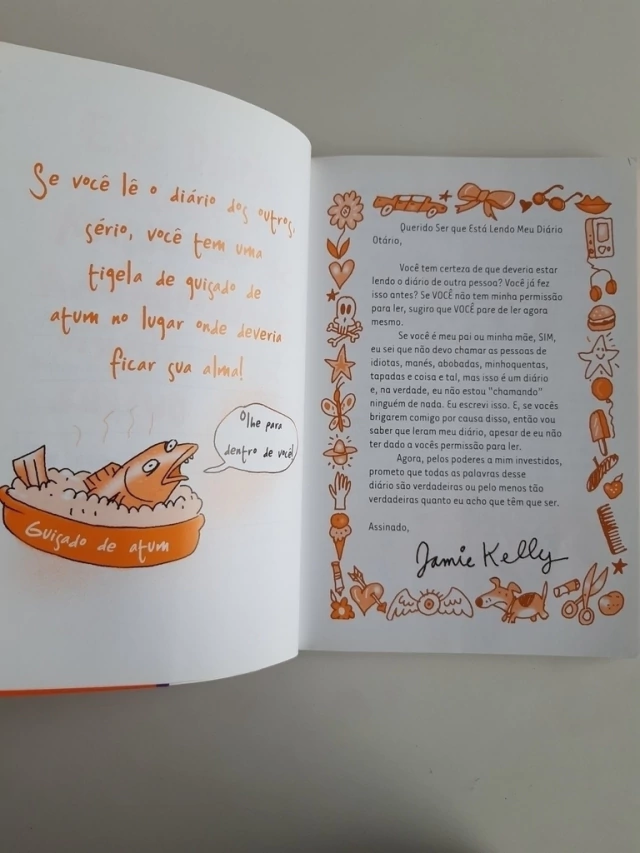 Se você lê o diário dos outros,
sério, você tem uma
tigela de guisado de
atum no lugar onde deveria
ficar sua alma!
Olhe para
dentro de você!
Guisado de atum
Querido Ser que Está Lendo Meu Diário
Otário,
Você tem certeza de que deveria estar
lendo o diário de outra pessoa? Você já fez
isso antes? Se VOCÊ não tem minha permissão
para ler, sugiro que VOCÊ pare de ler agora
mesmo.
Se você é meu pai ou minha mãe, SIM,
eu sei que não devo chamar as pessoas de
idiotas, manés, abobadas, minhoquentas,
tapadas e coisa e tal, mas isso é um diário
e, na verdade, eu não estou "chamando"
ninguém de nada. Eu escrevi isso. E, se vocês
brigarem comigo por causa disso, então vou
saber que leram meu diário, apesar de eu não
ter dado a vocês permissão para ler.
Agora, pelos poderes a mim investidos,
prometo que todas as palavras desse
diário são verdadeiras ou pelo menos tão
verdadeiras quanto eu acho que têm que ser.
Assinado,
Jamie Kelly